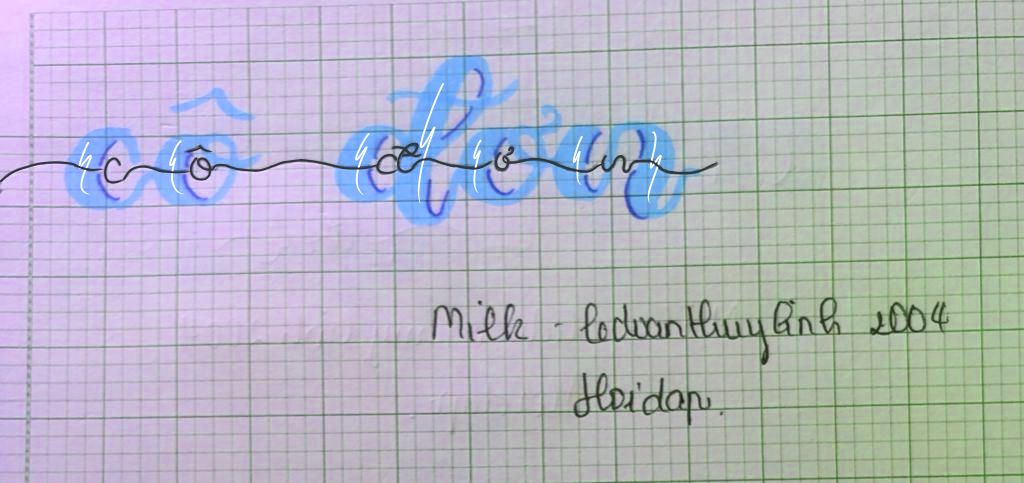 cô đơn
Milk - ledoanthuylinh 2004
Hoidap.